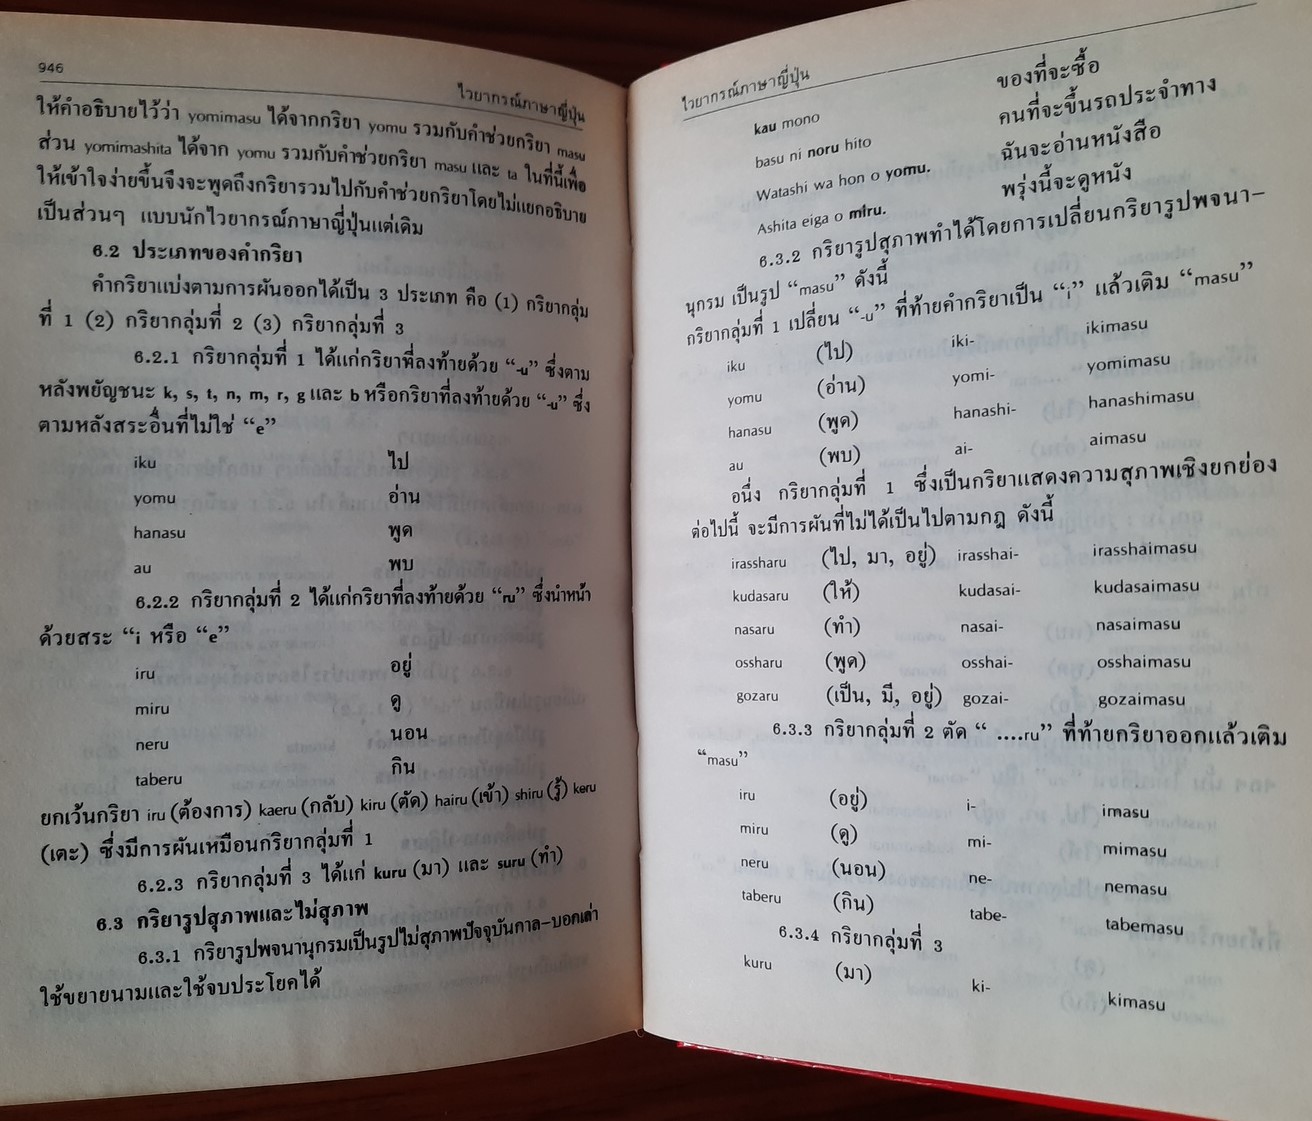 946
ไวยากรณ์ภาษาญี่ปุ่น
ให้คำอธิบายไว้ว่า yomimasu ได้จากกริยา yomu รวมกับคำช่วยกริยา masu
ส่วน yomimashita ได้จาก yomu รวมกับคำช่วยกริยา masu และ ta ในที่นี้เพื่อ
ให้เข้าใจง่ายขึ้นจึงจะพูดถึงกริยารวมไปกับคำช่วยกริยาโดยไม่แยกอธิบาย
เป็นส่วนๆ แบบนักไวยากรณ์ภาษาญี่ปุ่นแต่เดิม
6.2 ประเภทของคำกริยา
คำกริยาแบ่งตามการผันออกได้เป็น 3 ประเภท คือ (1) กริยากลุ่ม
ที่ 1 (2) กริยากลุ่มที่ 2 (3) กริยากลุ่มที่ 3
6.2.1 กริยากลุ่มที่ 1 ได้แก่กริยาที่ลงท้ายด้วย “-u” ซึ่งตาม
หลังพยัญชนะ k, s, t, n, m, r, g และ b หรือกริยาที่ลงท้ายด้วย “-u” ซึ่ง
ตามหลังสระอื่นที่ไม่ใช่ “e”
iku ไป
yomu อ่าน
hanasu พูด
au พบ
6.2.2 กริยากลุ่มที่ 2 ได้แก่กริยาที่ลงท้ายด้วย “ru” ซึ่งนำหน้า
ด้วยสระ “i หรือ “e”
iru อยู่
miru ดู
neru นอน
taberu กิน
ยกเว้นกริยา iru (ต้องการ) kaeru (กลับ) kiru (ตัด) hairu (เข้า) shiru (รู้) keru
(เตะ) ซึ่งมีการผันเหมือนกริยากลุ่มที่ 1
6.2.3 กริยากลุ่มที่ 3 ได้แก่ kuru (มา) และ suru (ทำ)
6.3 กริยารูปสุภาพและไม่สุภาพ
6.3.1 กริยารูปพจนานุกรมเป็นรูปไม่สุภาพปัจจุบันกาล–บอกเล่า
ใช้ขยายนามและใช้จบประโยคได้
ไวยากรณ์ภาษาญี่ปุ่น
kau mono ของที่จะซื้อ
basu ni noru hito คนที่จะขึ้นรถประจำทาง
Watashi wa hon o yomu. ฉันจะอ่านหนังสือ
Ashita eiga o miru. พรุ่งนี้จะดูหนัง
6.3.2 กริยารูปสุภาพทำได้โดยการเปลี่ยนกริยารูปพจนา–
นุกรม เป็นรูป “masu” ดังนี้
กริยากลุ่มที่ 1 เปลี่ยน “-u” ที่ท้ายคำกริยาเป็น “i” แล้วเติม “masu”
iku (ไป) iki- ikimasu
yomu (อ่าน) yomi- yomimasu
hanasu (พูด) hanashi- hanashimasu
au (พบ) ai- aimasu
อนึ่ง กริยากลุ่มที่ 1 ซึ่งเป็นกริยาแสดงความสุภาพเชิงยกย่อง
ต่อไปนี้ จะมีการผันที่ไม่ได้เป็นไปตามกฎ ดังนี้
irassharu (ไป, มา, อยู่) irasshai- irasshaimasu
kudasaru (ให้) kudasai- kudasaimasu
nasaru (ทำ) nasai- nasaimasu
ossharu (พูด) osshai- osshaimasu
gozaru (เป็น, มี, อยู่) gozai- gozaimasu
6.3.3 กริยากลุ่มที่ 2 ตัด “ ....ru” ที่ท้ายกริยาออกแล้วเติม
“masu”
iru (อยู่) i- imasu
miru (ดู) mi- mimasu
neru (นอน) ne- nemasu
taberu (กิน) tabe- tabemasu
6.3.4 กริยากลุ่มที่ 3
kuru (มา) ki- kimasu